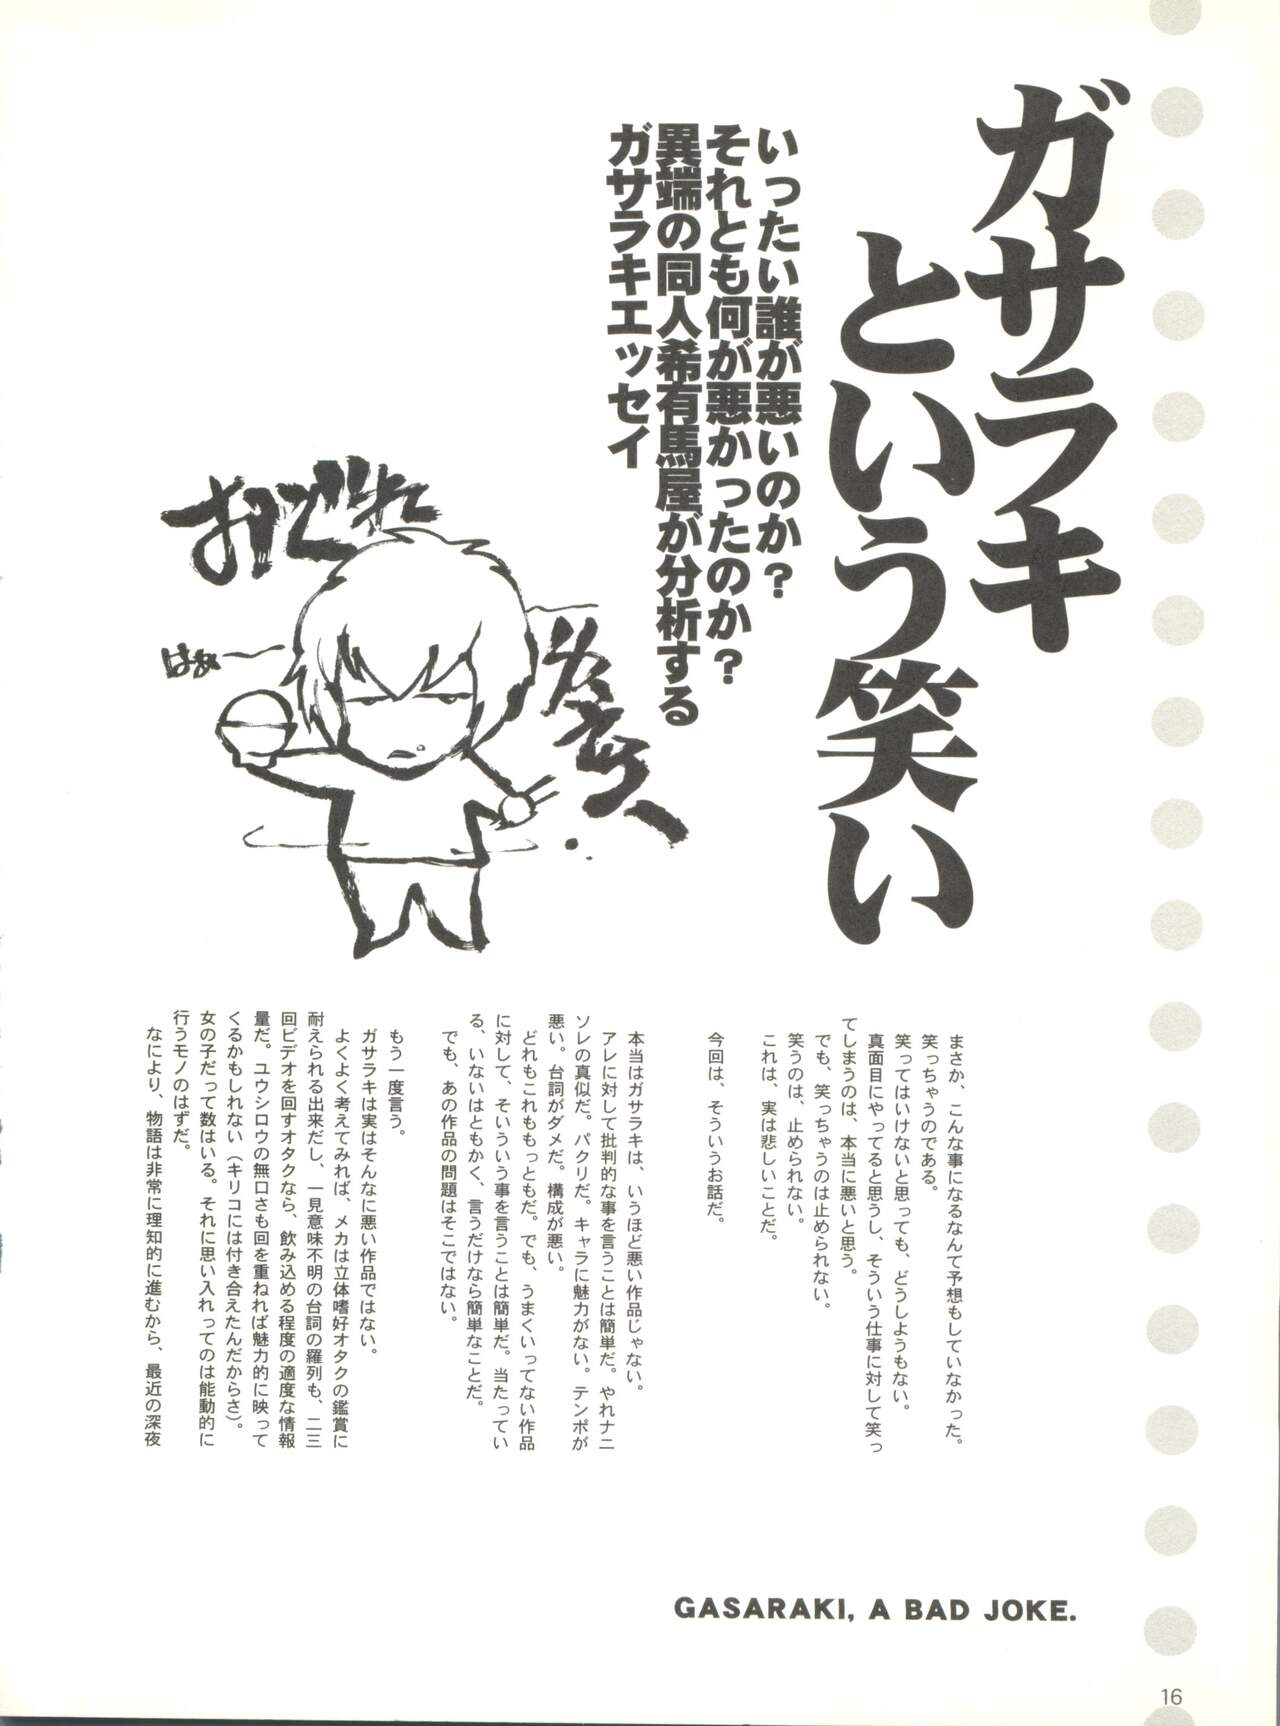 ガサラキ
という笑い
いったい誰が悪いのか?
それとも何が悪かったのか?
異端の同人希有馬屋が分析する
ガサラキエッセイ
おでれ
はぁ〜
まさか、こんな事になるなんて予想もしていなかった。
笑っちゃうのである。
笑ってはいけないと思っても、どうしようもない。
真面目にやってると思うし、そういう仕事に対して笑っ
てしまうのは、本当に悪いと思う。
でも、笑っちゃうのは止められない。
笑うのは、止められない。
これは、実は悲しいことだ。
今回は、そういうお話だ。
本当はガサラキは、いうほど悪い作品じゃない。
アレに対して批判的な事を言うことは簡単だ。やれナニ
ソレの真似だ。パクリだ。キャラに魅力がない。テンポが
悪い。台詞がダメだ。構成が悪い。
どれもこれももっともだ。でも、うまくいってない作品
に対して、そいういう事を言うことは簡単だ。当たってい
る、いないはともかく、言うだけなら簡単なことだ。
でも、あの作品の問題はそこではない。
もう一度言う。
ガサラキは実はそんなに悪い作品ではない。
よくよく考えてみれば、メカは立体嗜好オタクの鑑賞に
耐えられる出来だし、一見意味不明の台詞の羅列も、二三
回ビデオを回すオタクなら、飲み込める程度の適度な情報
量だ。ユウシロウの無口さも回を重ねれば魅力的に映って
くるかもしれない（キリコには付き合えたんだからさ）。
女の子だって数はいる。それに思い入れってのは能動的に
行うモノのはずだ。
なにより、物語は非常に理知的に進むから、最近の深夜
GASARAKI, A BAD JOKE.
16